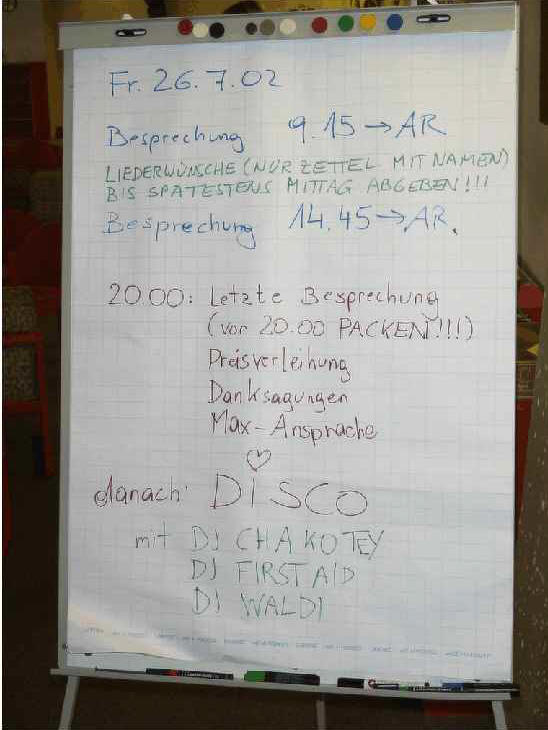 Fr. 26.7.02
Besprechung 9.15 → AR
LIEDERWÜNSCHE (NUR ZETTEL MIT NAMEN)
BIS SPÄTESTENS MITTAG ABGEBEN!!!
Besprechung 14.45 → AR.
20.00: Letzte Besprechung
(vor 20.00 PACKEN!!!)
Preisverleihung
Danksagungen
Max-Ansprache
♡
danach: DISCO
mit DJ CHAKOTEY
DJ FIRST AID
DJ WALDI